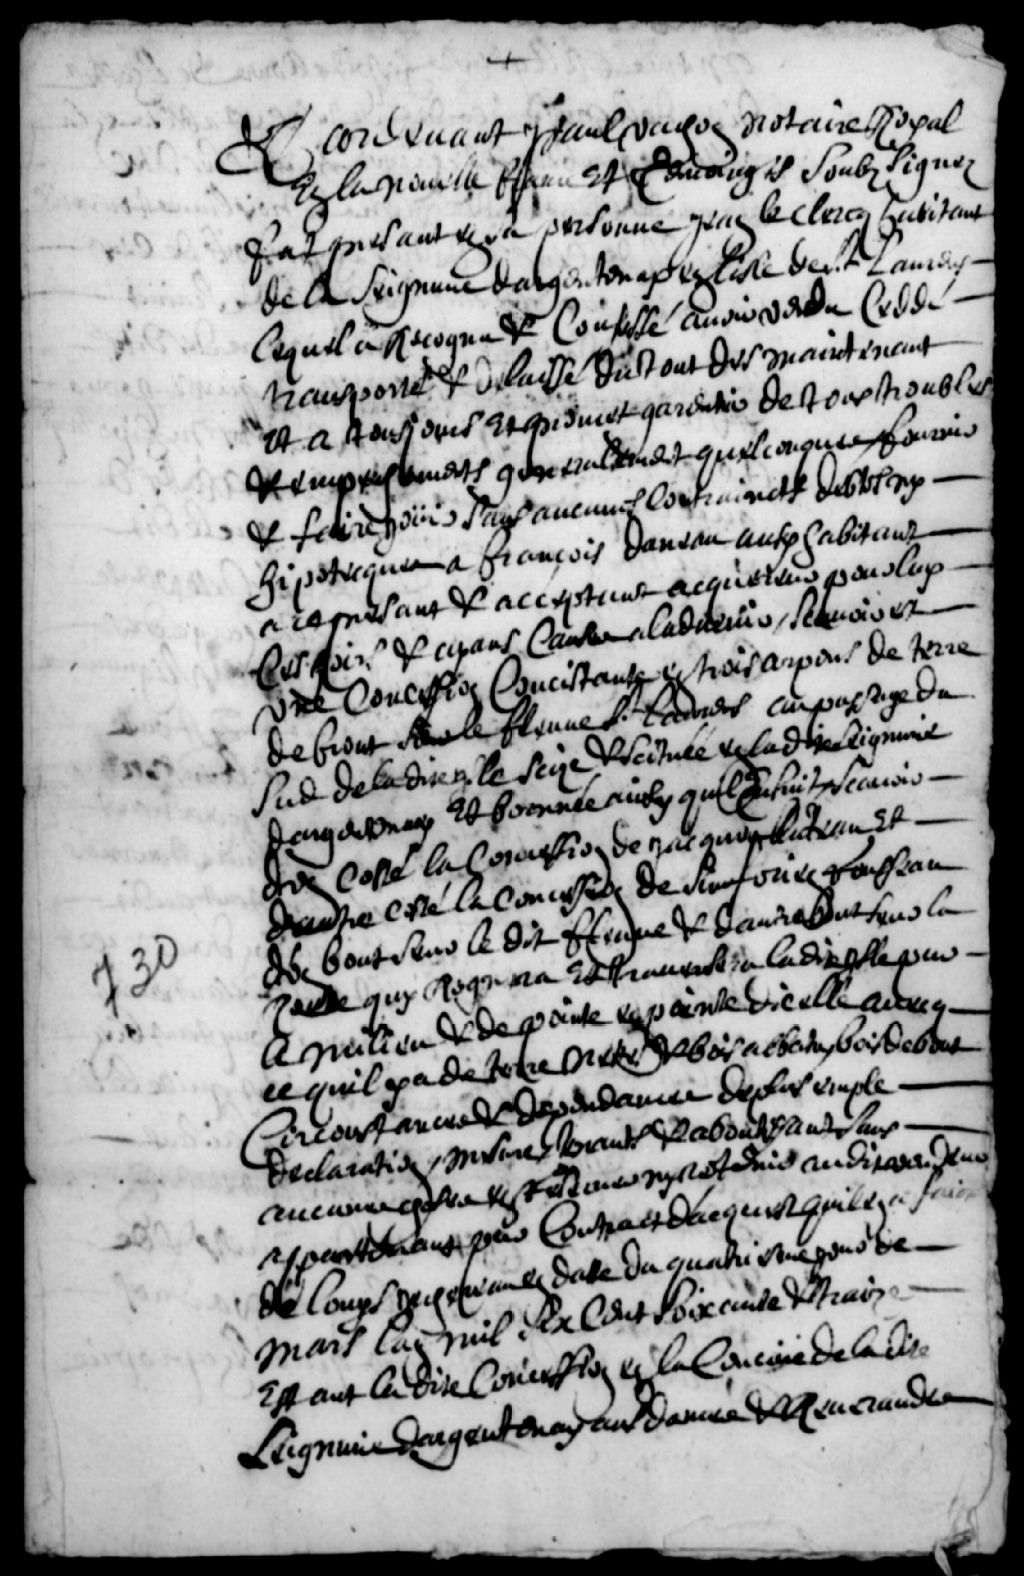 +
Pardevant Paul vachon notaire Royal
En la nouvelle france Et tesmoings soubz signez
fut present en sa personne Jean le clercq habitant
de la seigneurie dargentenay en lisle de St Laurens
lequel a Recognu & Confessé avoir vendu Ceddé
transporté & delaissé du tout des maintenant
et a tousjours Et promet garentir de tous troubles
& empeschements generallement quelconques fournir
& faire jouir sans aucuns Contraincts debtes ny
hipotecques a françois daneau aussy habitant
a ce present & acceptant acquereur pour luy
Ces hoirs & ayans Cause a ladvenir, scavoir est
une Concession Concistante en trois arpens de terre
de front sur le fleuve St Laurens au passage du
Sud de la dite isle Seize & scituée en la dite seigneurie
dargentenay Et bornée ainsy quil Ensuit scavoir
dun costé la Concession de Jacques
dautre costé la Concession de Simforien Rousseau
dun bout sur le dit fleuve & dautre bout sur la
Route quy Regnera Et traversera la dite isle par
le milieu & de pointe en pointe dicelle avecq
ce quil y a de terre nette & bois abbatu, bois debout
Circonstances & dependances de plus emple
declaration, mesure, tenants & aboutissants sans
aucune chose en excepter ny retenir au dit vendeur
appartenant par Contract dacquest quil en a faict
de Louys en datte du quatriesme jour de
mars lan mil six Cent soixante & traize
Estant la dite Concession en la Censive de la dite
Seigneurie dargentenay aux dames & Reverandes
730